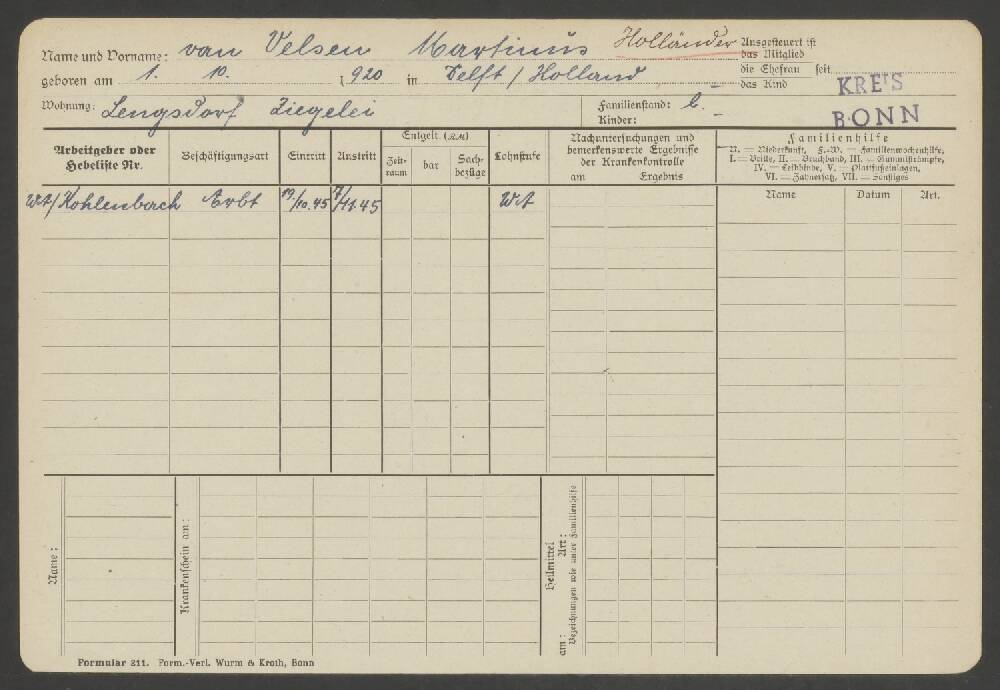 Name und Vorname: van Velsen Martinus Holländer Ausgesteuert ist
das Mitglied
geboren am 1. 10. 1920 in Delft / Holland die Ehefrau seit
das Kind
KREIS
BONN
Wohnung: Lengsdorf Ziegelei Familienstand: l. –
Kinder: –
Arbeitgeber oder Hebeliste Nr.
Beschäftigungsart
Eintritt
Austritt
Entgelt (RM)
Zeit-raum
bar
Sach-bezüge
Lohnstufe
Nachuntersuchungen und
bemerkenswerte Ergebnisse
der Krankenkontrolle
am Ergebnis
Familienhilfe
N. = Niederkunft, F.-W. = Familienwochenhilfe,
I. = Brille, II. = Bruchband, III. = Gummistrümpfe,
IV. = Leibbinde, V. = Plattfußeinlagen,
VI. = Zahnersatz, VII. = Sonstiges
Name Datum Art.
Wt/Kohlenbach Arbt 19/10.45 7/11.45 Wt
Name:
Krankenschein am:
Heilmittel
Art:
am: Bezeichnungen wie unter Familienhilfe
Formular 211. Form.-Verl. Wurm & Kroth, Bonn